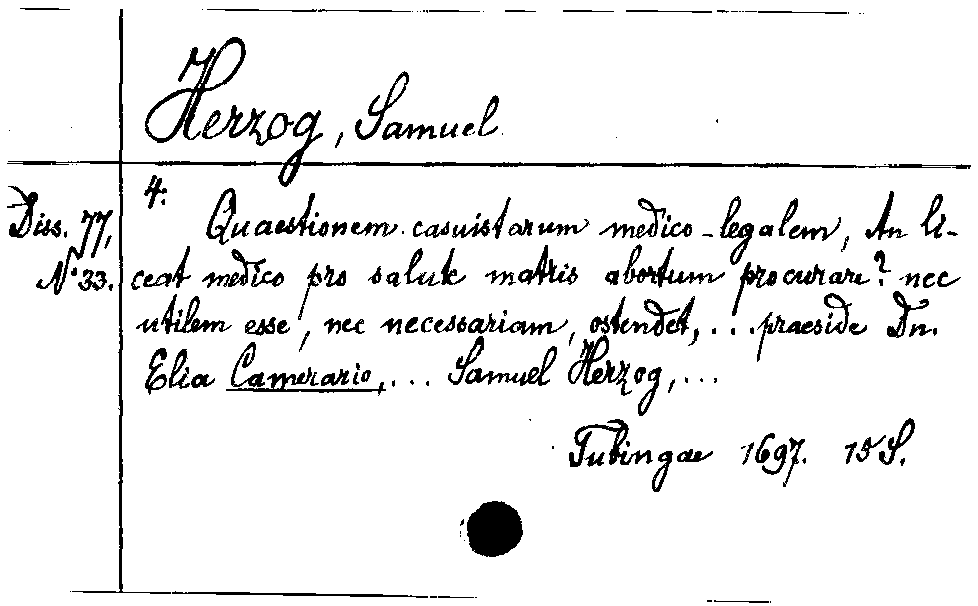 Herzog, Samuel
4:
Diss. 77,
N° 33.
Quaestionem casuistarum medico-legalem, An li-
ceat medico pro salute matris abortum procurare? nec
utilem esse, nec necessariam, ostendet, ... praeside Dn.
Elia Camerario, ... Samuel Herzog, ...
Tubingae 1697. 15 S.